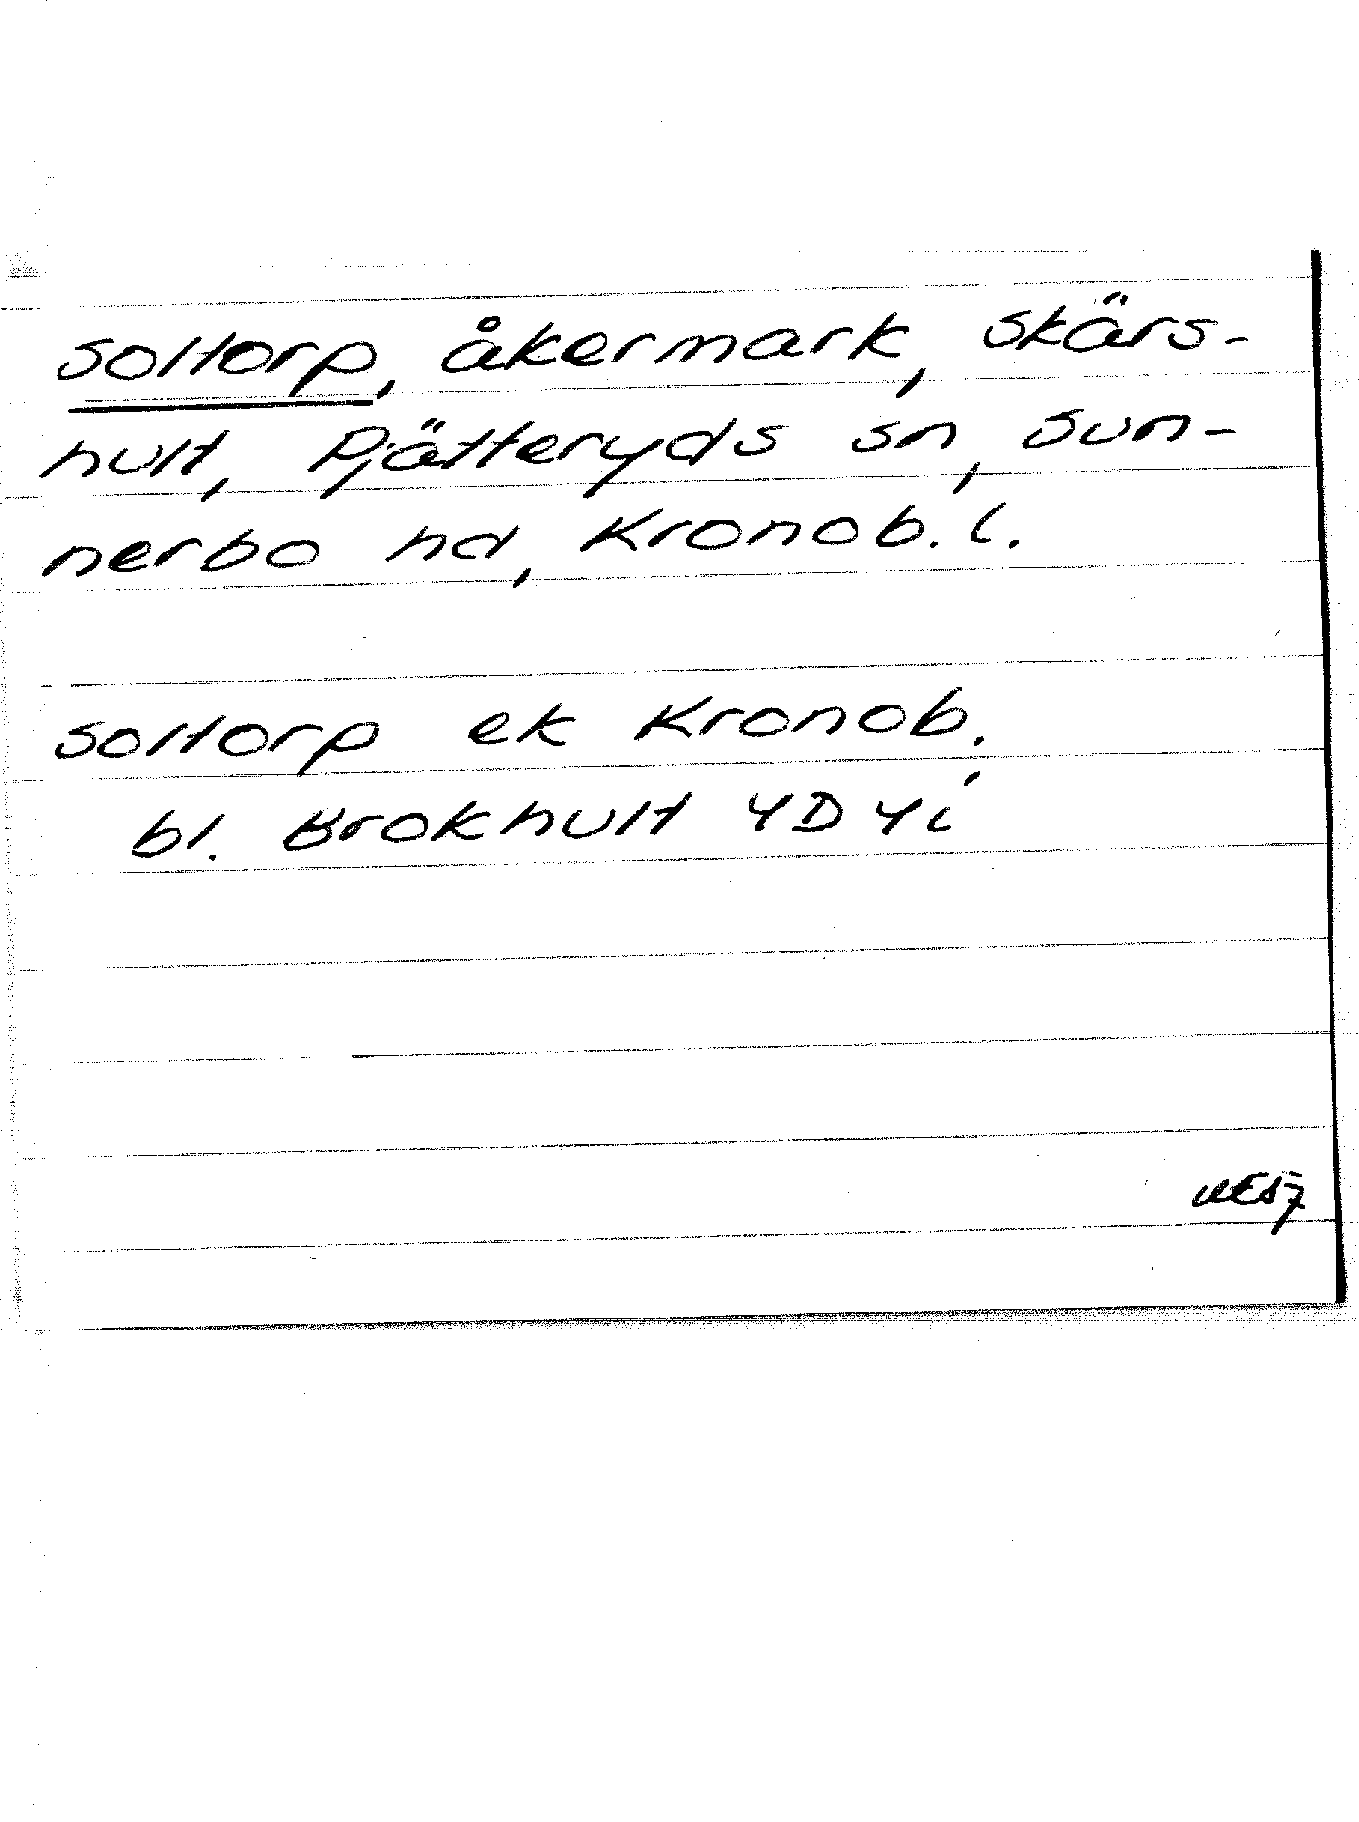 Soltorp, åkermark, Skärs-
hult, Pjätteryds sn, Sun-
nerbo hd, Kronob. l.
Soltorp ek Kronob.
bl. Brokhult 4D 4i